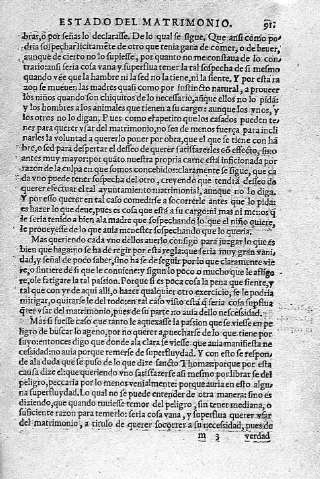 ESTADO DEL MATRIMONIO. 91.
brar, ò por señas lo declarasse. De lo qual se sigue, Que ansi como po
dria sospechar licitamẽte de otro que tenia gana de comer, o de beuer,
aunque de cierto no lo supiesse, por quanto no me constaua de lo con-
trario: ansi seria cosa vana y superflua tener la tal sospecha de si mesmo
quando vee que la hambre ni la sed no la tiene, ni la siente. Y por esta ra
zon se mueuen las madres quasi como por instincto natural, a proueer
los niños quando son chiquitos de lo necessario, aũque ellos no lo pidã:
y los hombres a los animales que tienen a su cargo: aunque los vnos, y
los otros no lo digan. Pues como el apetito que los casados pueden te-
ner para querer vsar del matrimonio, no sea de menos fuerça para incli
narles la voluntad a quererlo poner por obra, que el que se tiene con hã
bre, o sed para despertar el desseo de querer satisfazerles cõ effecto, sino
antes muy mayor: por quãto nuestra propria carne està inficionada por
razon de la culpa en que somos concebidos: claramente se sigue, que ca
da vno puede tener sospecha del otro, creyendo que tendrà desseo de
querer efectuar el tal ayuntamiento matrimonial, aunque no lo diga.
Y por esso querer en tal caso comedirse a socorrerle antes que lo pida:
es hazer lo que deue, pues es cosa que està a su cargo: ni mas ni menos q̃
le seria tenido a bien a la madre que sospechando lo que el niño quiere,
le proueyesse de lo que auia menester sospechando que lo queria.
Mas queriendo cada vno dellos auerlo consigo para juzgar lo que es
bien que hagan o se ha de regir por esta regla: que seria muy gran vani-
dad, y señal de poco saber, sino ha de seguir por lo que claramente vie
re, o sintiere dê si que le conuiene y segun lo poco o mucho que le affligo
re, o le fatigare la tal passion. Porque si es poca la pena que siente, y
tal que con yr de aqui alli, o hazer qualquier otro exercicio, se le podria
mitigar, o quitarse le del todo: en tal caso visto està q̃ seria cosa supflua
q̃rer vsar del matrimonio, pues de su parte no auia dello nescessidad.
Mas si fuesse caso que tanto le aquexasse la passion que se viesse en pe
ligro de buscar lo ageno, por no querer aprouecharse de lo que tiene por
suyo: entonces digo que donde ala clara se viesse que auia manifiesta ne
cessidad: no auia porque temerse de superfluydad. Y con esto se respon-
de ala duda que se puso de lo que dize sancto Thomas: porque por esta
causa dize el: que queriendo vno satisfazerse asi mesmo por librarse del
peligro, peccaria por lo menos venialmente: porque auria en esto algu-
na superfluydad. Lo qual no se puede entender de otra manera: sino es
diziendo, que quando tuuiesse temor del peligro, sin tener mediana, o
suficiente razon para temerlo: seria cosa vana, y superflua querer vsar
del matrimonio, a titulo de querer socorrer a su necessidad, pues de
m 3 verdad